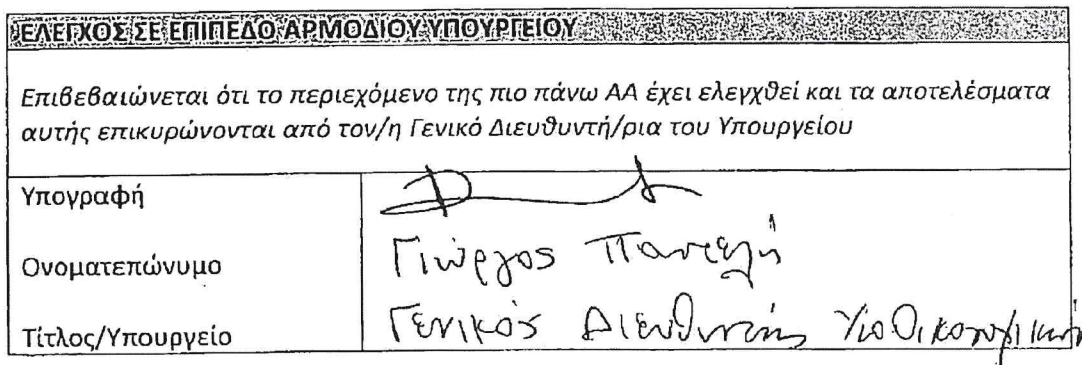 ΕΛΕΓΧΟΣ ΣΕ ΕΠΙΠΕΔΟ ΑΡΜΟΔΙΟΥ ΥΠΟΥΡΓΕΙΟΥ
Επιβεβαιώνεται ότι το περιεχόμενο της πιο πάνω ΑΑ έχει ελεγχθεί και τα αποτελέσματα
αυτής επικυρώνονται από τον/η Γενικό Διευθυντή/ρια του Υπουργείου
Υπογραφή
Ονοματεπώνυμο Γιώργος Παντελή
Τίτλος/Υπουργείο Γενικός Διευθυντής Υπ Οικονομικών